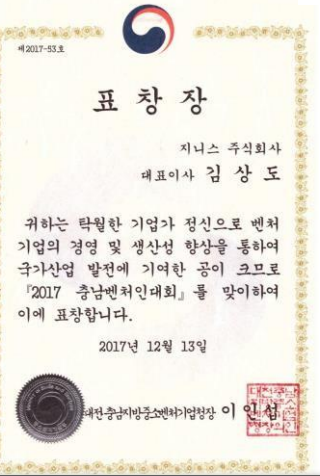 제2017-53호
표 창 장
지니스 주식회사
대표이사 김 상 도
귀하는 탁월한 기업가 정신으로 벤처
기업의 경영 및 생산성 향상을 통하여
국가산업 발전에 기여한 공이 크므로
『2017 충남벤처인대회』를 맞이하여
이에 표창합니다.
2017년 12월 13일
대전·충남지방중소벤처기업청장 이 인 섭